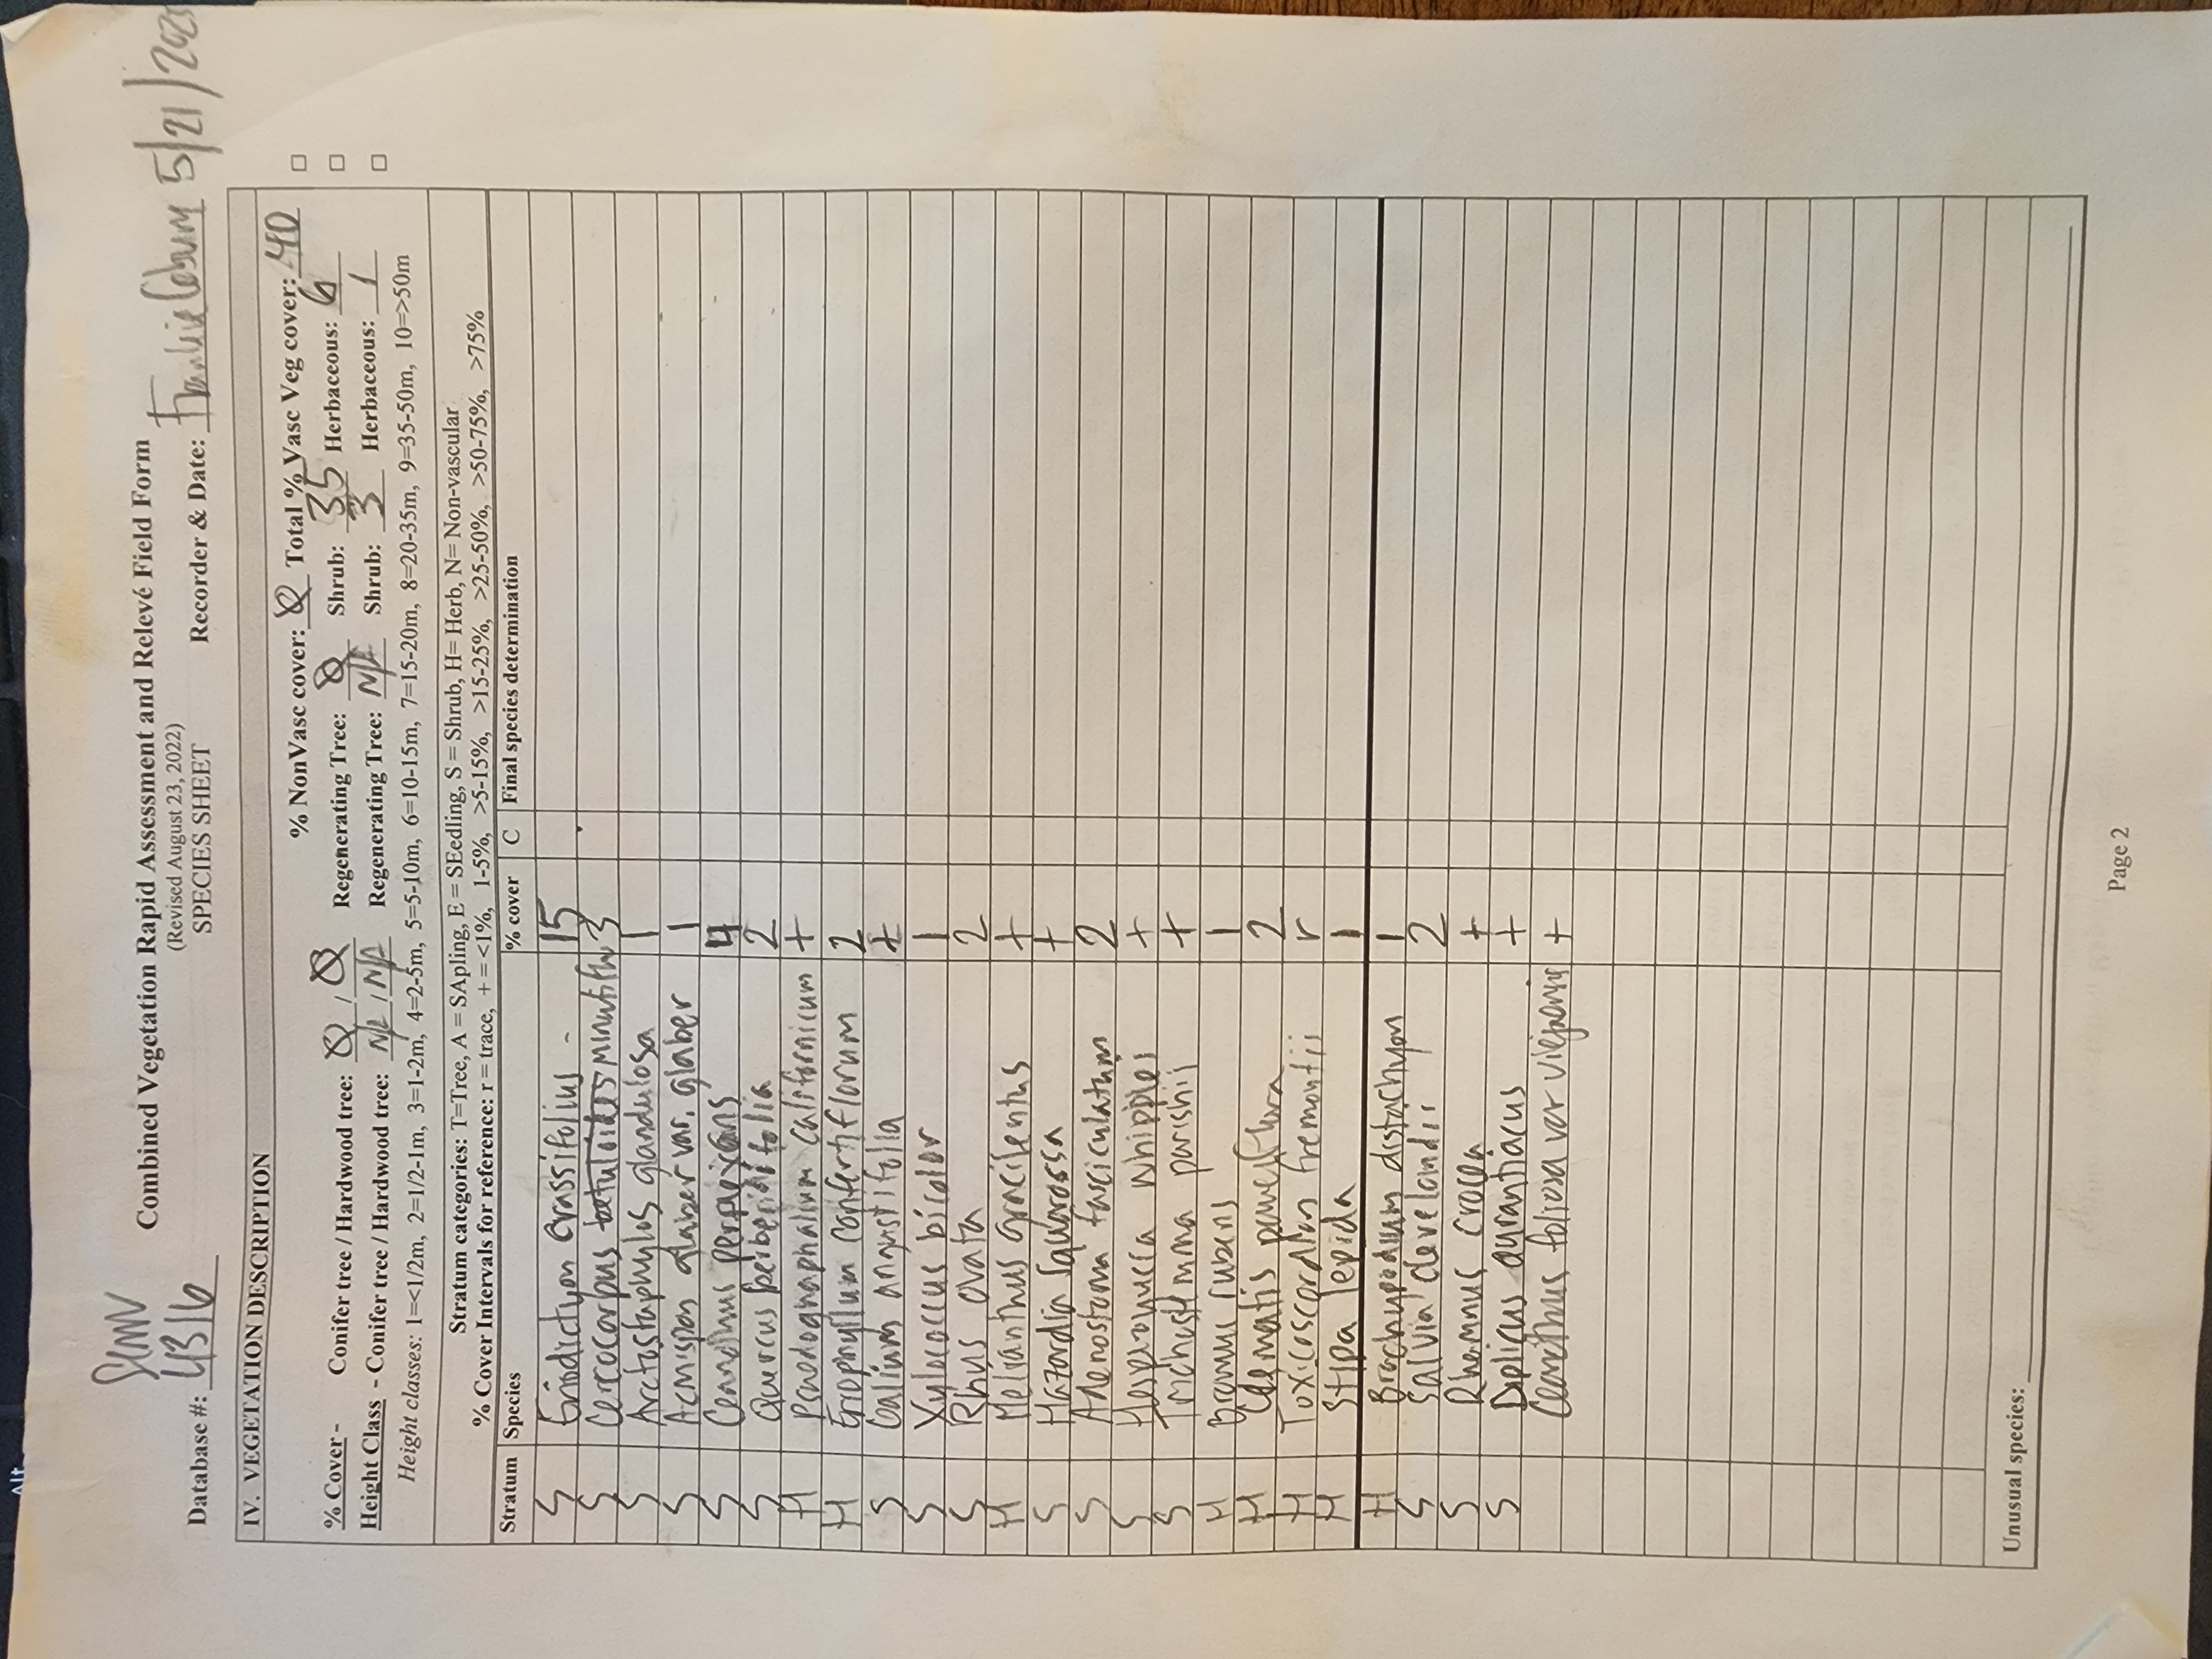 Alt
Combined Vegetation Rapid Assessment and Relevé Field Form
(Revised August 23, 2022)
SPECIES SHEET
Database #: 4316
Recorder & Date: 5/21/202
IV. VEGETATION DESCRIPTION
% NonVasc cover: Ø Total % Vasc Veg cover: 40
% Cover - Conifer tree / Hardwood tree: Ø / Ø Regenerating Tree: Ø Shrub: 35 Herbaceous: 6
Height Class - Conifer tree / Hardwood tree: N/A / N/A Regenerating Tree: N/A Shrub: 3 Herbaceous: 1
Height classes: 1=<1/2m, 2=1/2-1m, 3=1-2m, 4=2-5m, 5=5-10m, 6=10-15m, 7=15-20m, 8=20-35m, 9=35-50m, 10=>50m
Stratum categories: T=Tree, A = SApling, E = SEedling, S = Shrub, H= Herb, N= Non-vascular
% Cover Intervals for reference: r = trace, + = <1%, 1-5%, >5-15%, >15-25%, >25-50%, >50-75%, >75%
Stratum Species % cover C Final species determination
S Eriodictyon crassifolius 15
S Cercocarpus minutiflu 3
S Arctostaphylos glandulosa 1
S Acmispon glaber var. glaber 1
S 4
S Quercus berberidifolia 2
H Pseudognaphalium californicum +
H Eriophyllum confertiflorum 2
S Galium angustifolia +
S Xylococcus bicolor 1
S Rhus ovata 2
H Helianthus gracilentus +
S Hazardia squarossa +
S Adenostoma fasciculatum 2
S Hesperoyucca whipplei +
S parishii +
H Bromus rubens 1
H Clematis 2
H Toxicoscordion fremontii r
H Stipa lepida 1
H Brachypodium distachyon 1
S Salvia clevelandii 2
S Rhamnus crocea +
S Diplicus aurantiacus +
Ceanothus foliosa var +
Unusual species:
Page 2